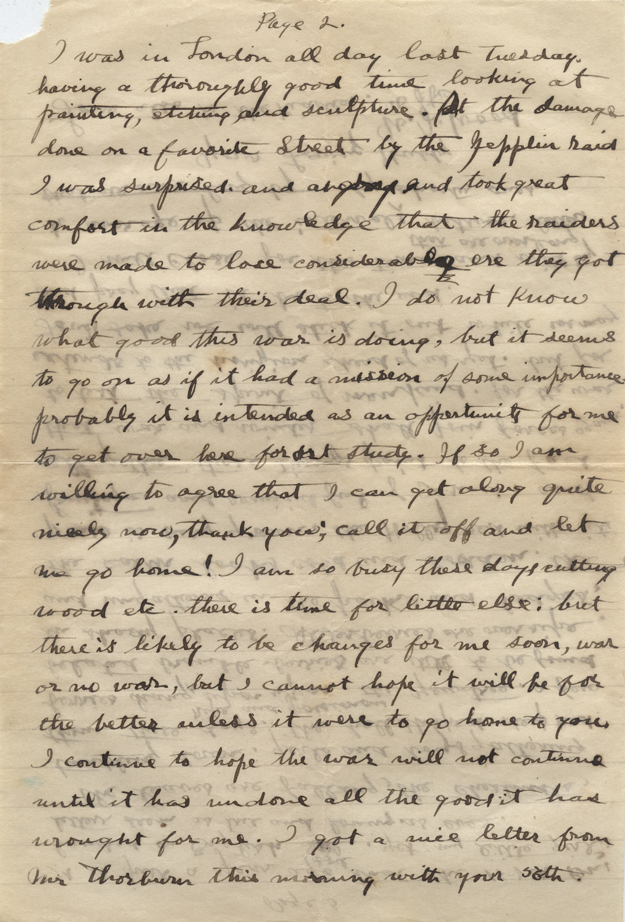 Page 2.
I was in London all day last Tuesday.
having a thoroughly good time looking at
painting, etching and sculpture. At the damage
done on a favorite Street by the Zepplin raid
I was surprised. and angry and took great
comfort in the knowledge that the raiders
were made to lose considerably ere they got
through with their deal. I do not know
what good this war is doing, but it seems
to go on as if it had a mission of some importance
probably it is intended as an opportunity for me
to get over here for art study. If so I am
willing to agree that I can get along quite
nicely now, thank you; call it off and let
me go home! I am so busy these days cutting
wood etc. there is time for little else: but
there is likely to be changes for me soon, war
or no war, but I cannot hope it will be for
the better unless it were to go home to you.
I continue to hope the war will not continue
until it has undone all the good it has
wrought for me. I got a nice letter from
Mr Thorburn this morning with your 56th.